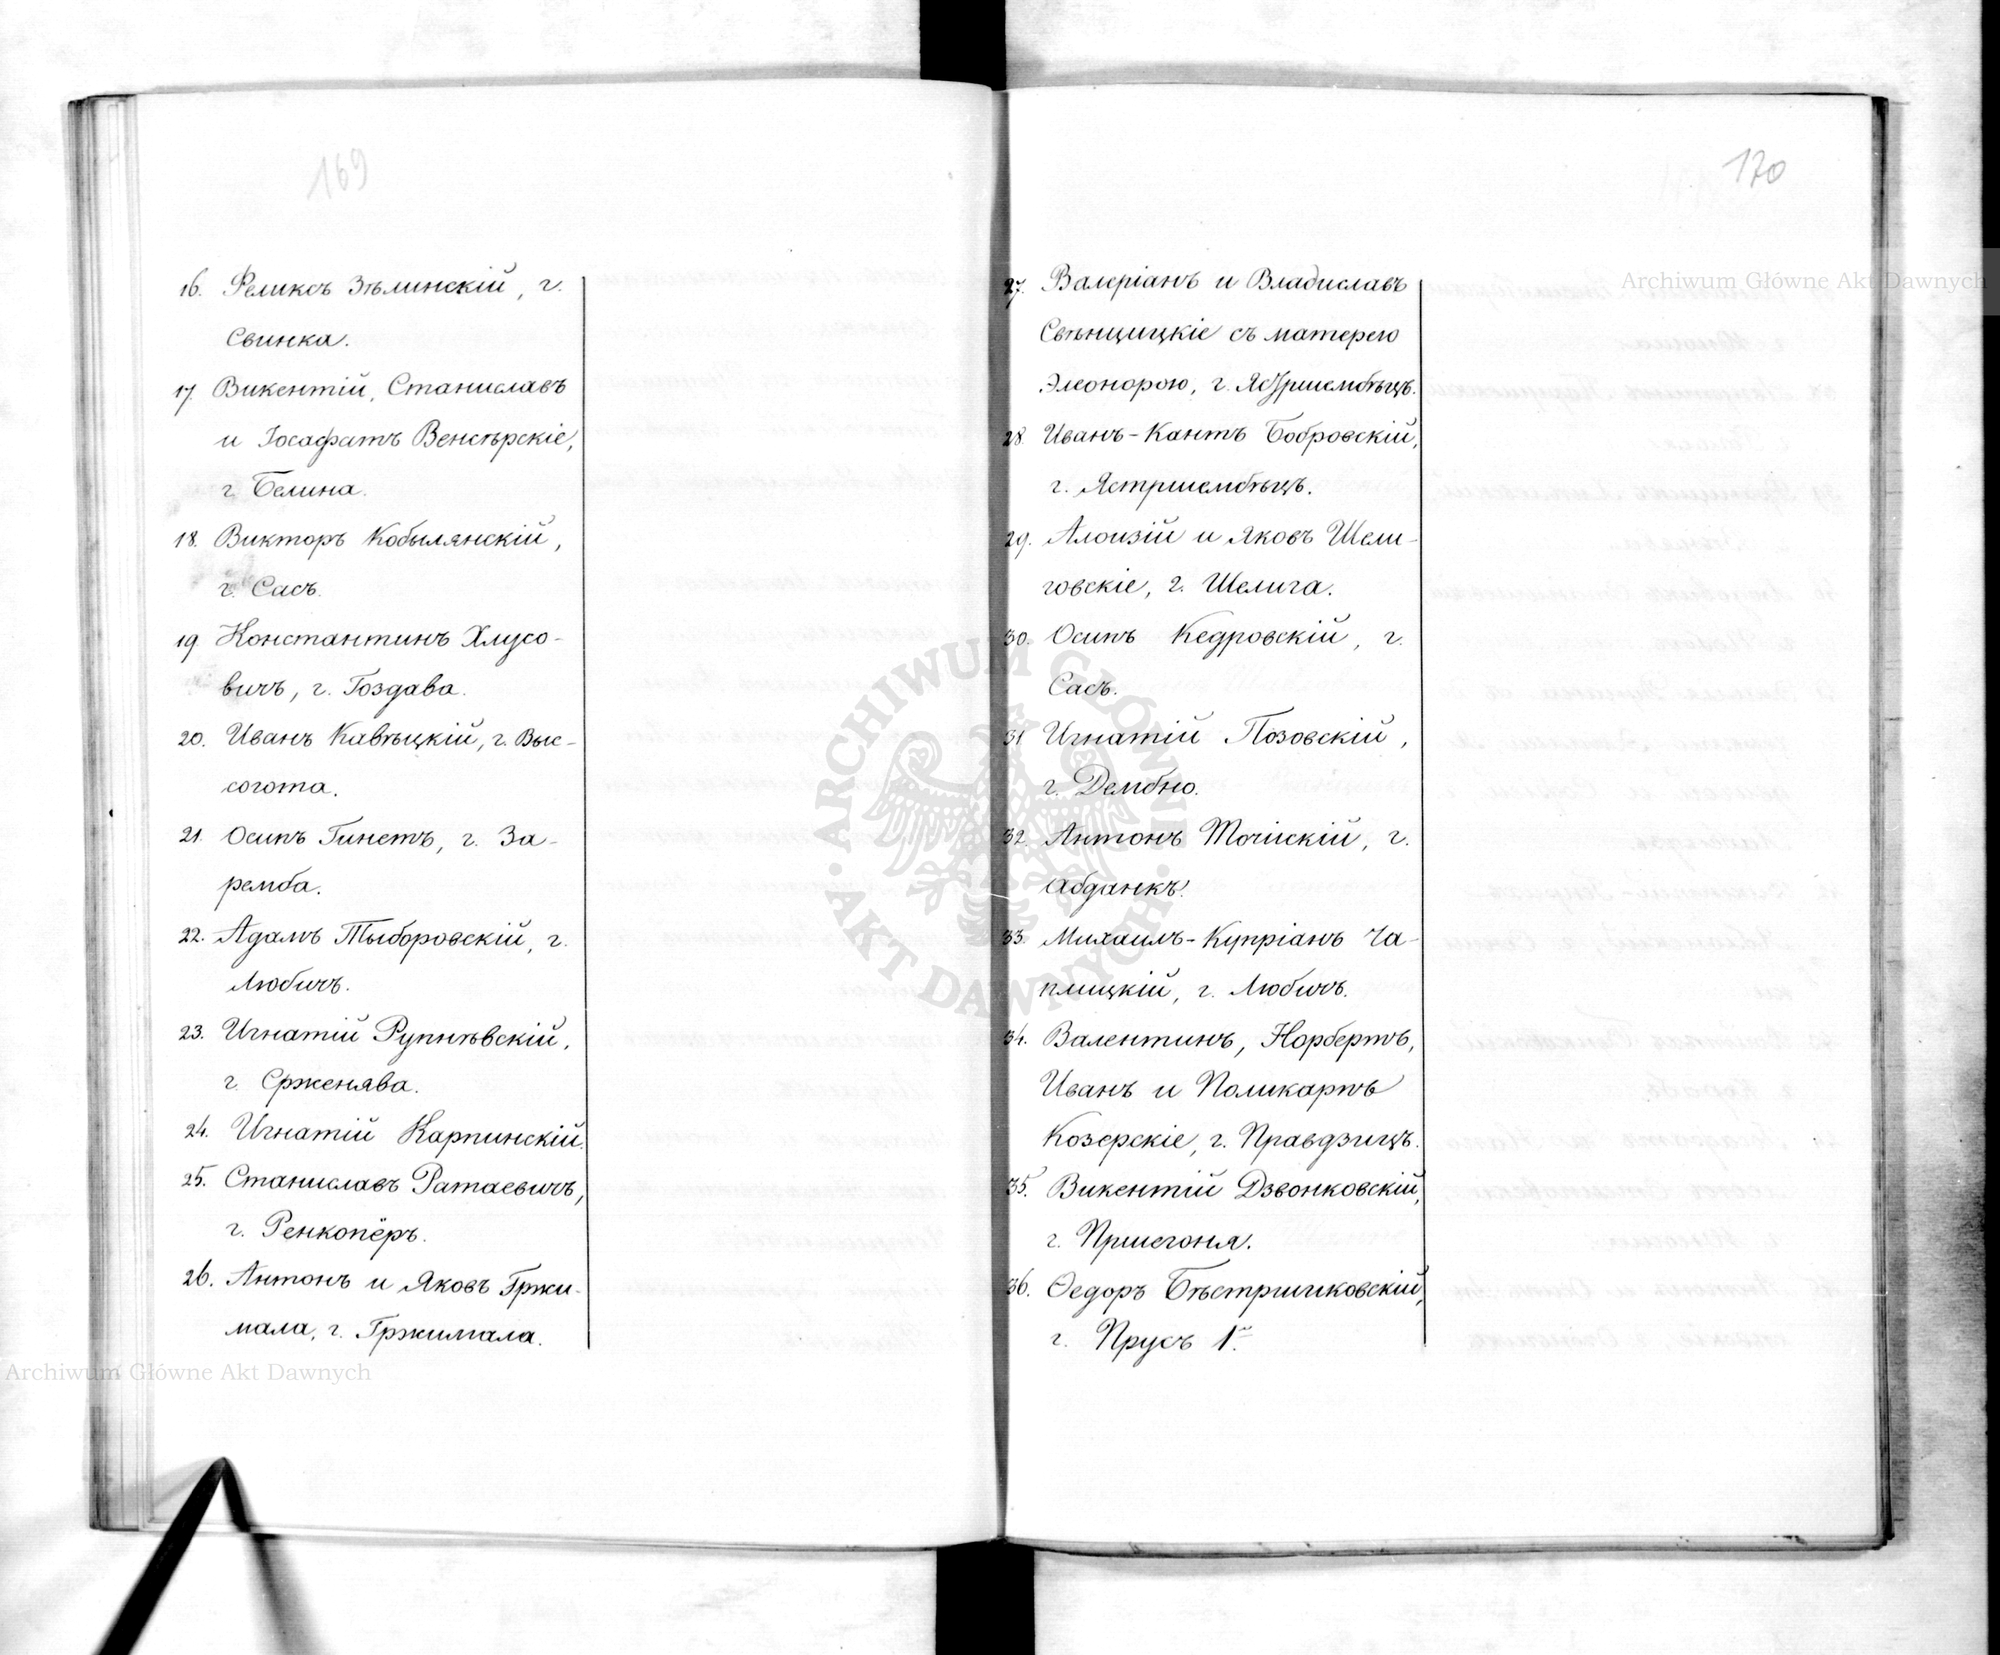 169
16. Феликсъ Зѣлинскій, г.
Свинка.
17. Викентій, Станиславъ
и Іосафатъ Венгѣрскіе,
г. Белина.
18. Викторъ Кобылянскій,
г. Сасъ.
19. Константинъ Хлусо-
вичъ, г. Гоздава.
20. Иванъ Кавѣцкій, г. Выс-
согота.
21. Осипъ Гинетъ, г. За-
ремба.
22. Адамъ Тыборовскій, г.
Любичъ.
23. Игнатій Рупнѣвскій,
г. Срженява.
24. Игнатій Карпинскій.
25. Станиславъ Ратаевичъ,
г. Ренкопёръ.
26. Антонъ и Яковъ Гржи-
мала, г. Гржимала.
170
27. Валеріанъ и Владиславъ
Свѣнщицкіе съ матерею
Элеонорою, г. Ястршембѣцъ.
28. Иванъ-Кантъ Бобровскій,
г. Ястршембѣцъ.
29. Алоизій и Яковъ Шели-
говскіе, г. Шелига.
30. Осипъ Кедровскій, г.
Сасъ.
31. Игнатій Лозовскій,
г. Дембно.
32. Антонъ Точискій, г.
Абданкъ.
33. Михаилъ-Купріанъ Ча-
плицкій, г. Любичъ.
34. Валентинъ, Норбертъ,
Иванъ и Поликарпъ
Козерскіе, г. Правдзицъ.
35. Викентій Дзвонковскій,
г. Пршегоня.
36. Ѳедоръ Бѣстршиковскій,
г. Прусъ 1й.
Archiwum Główne Akt Dawnych
ARCHIWUM GŁÓWNE AKT DAWNYCH
Archiwum Główne Akt Dawnych